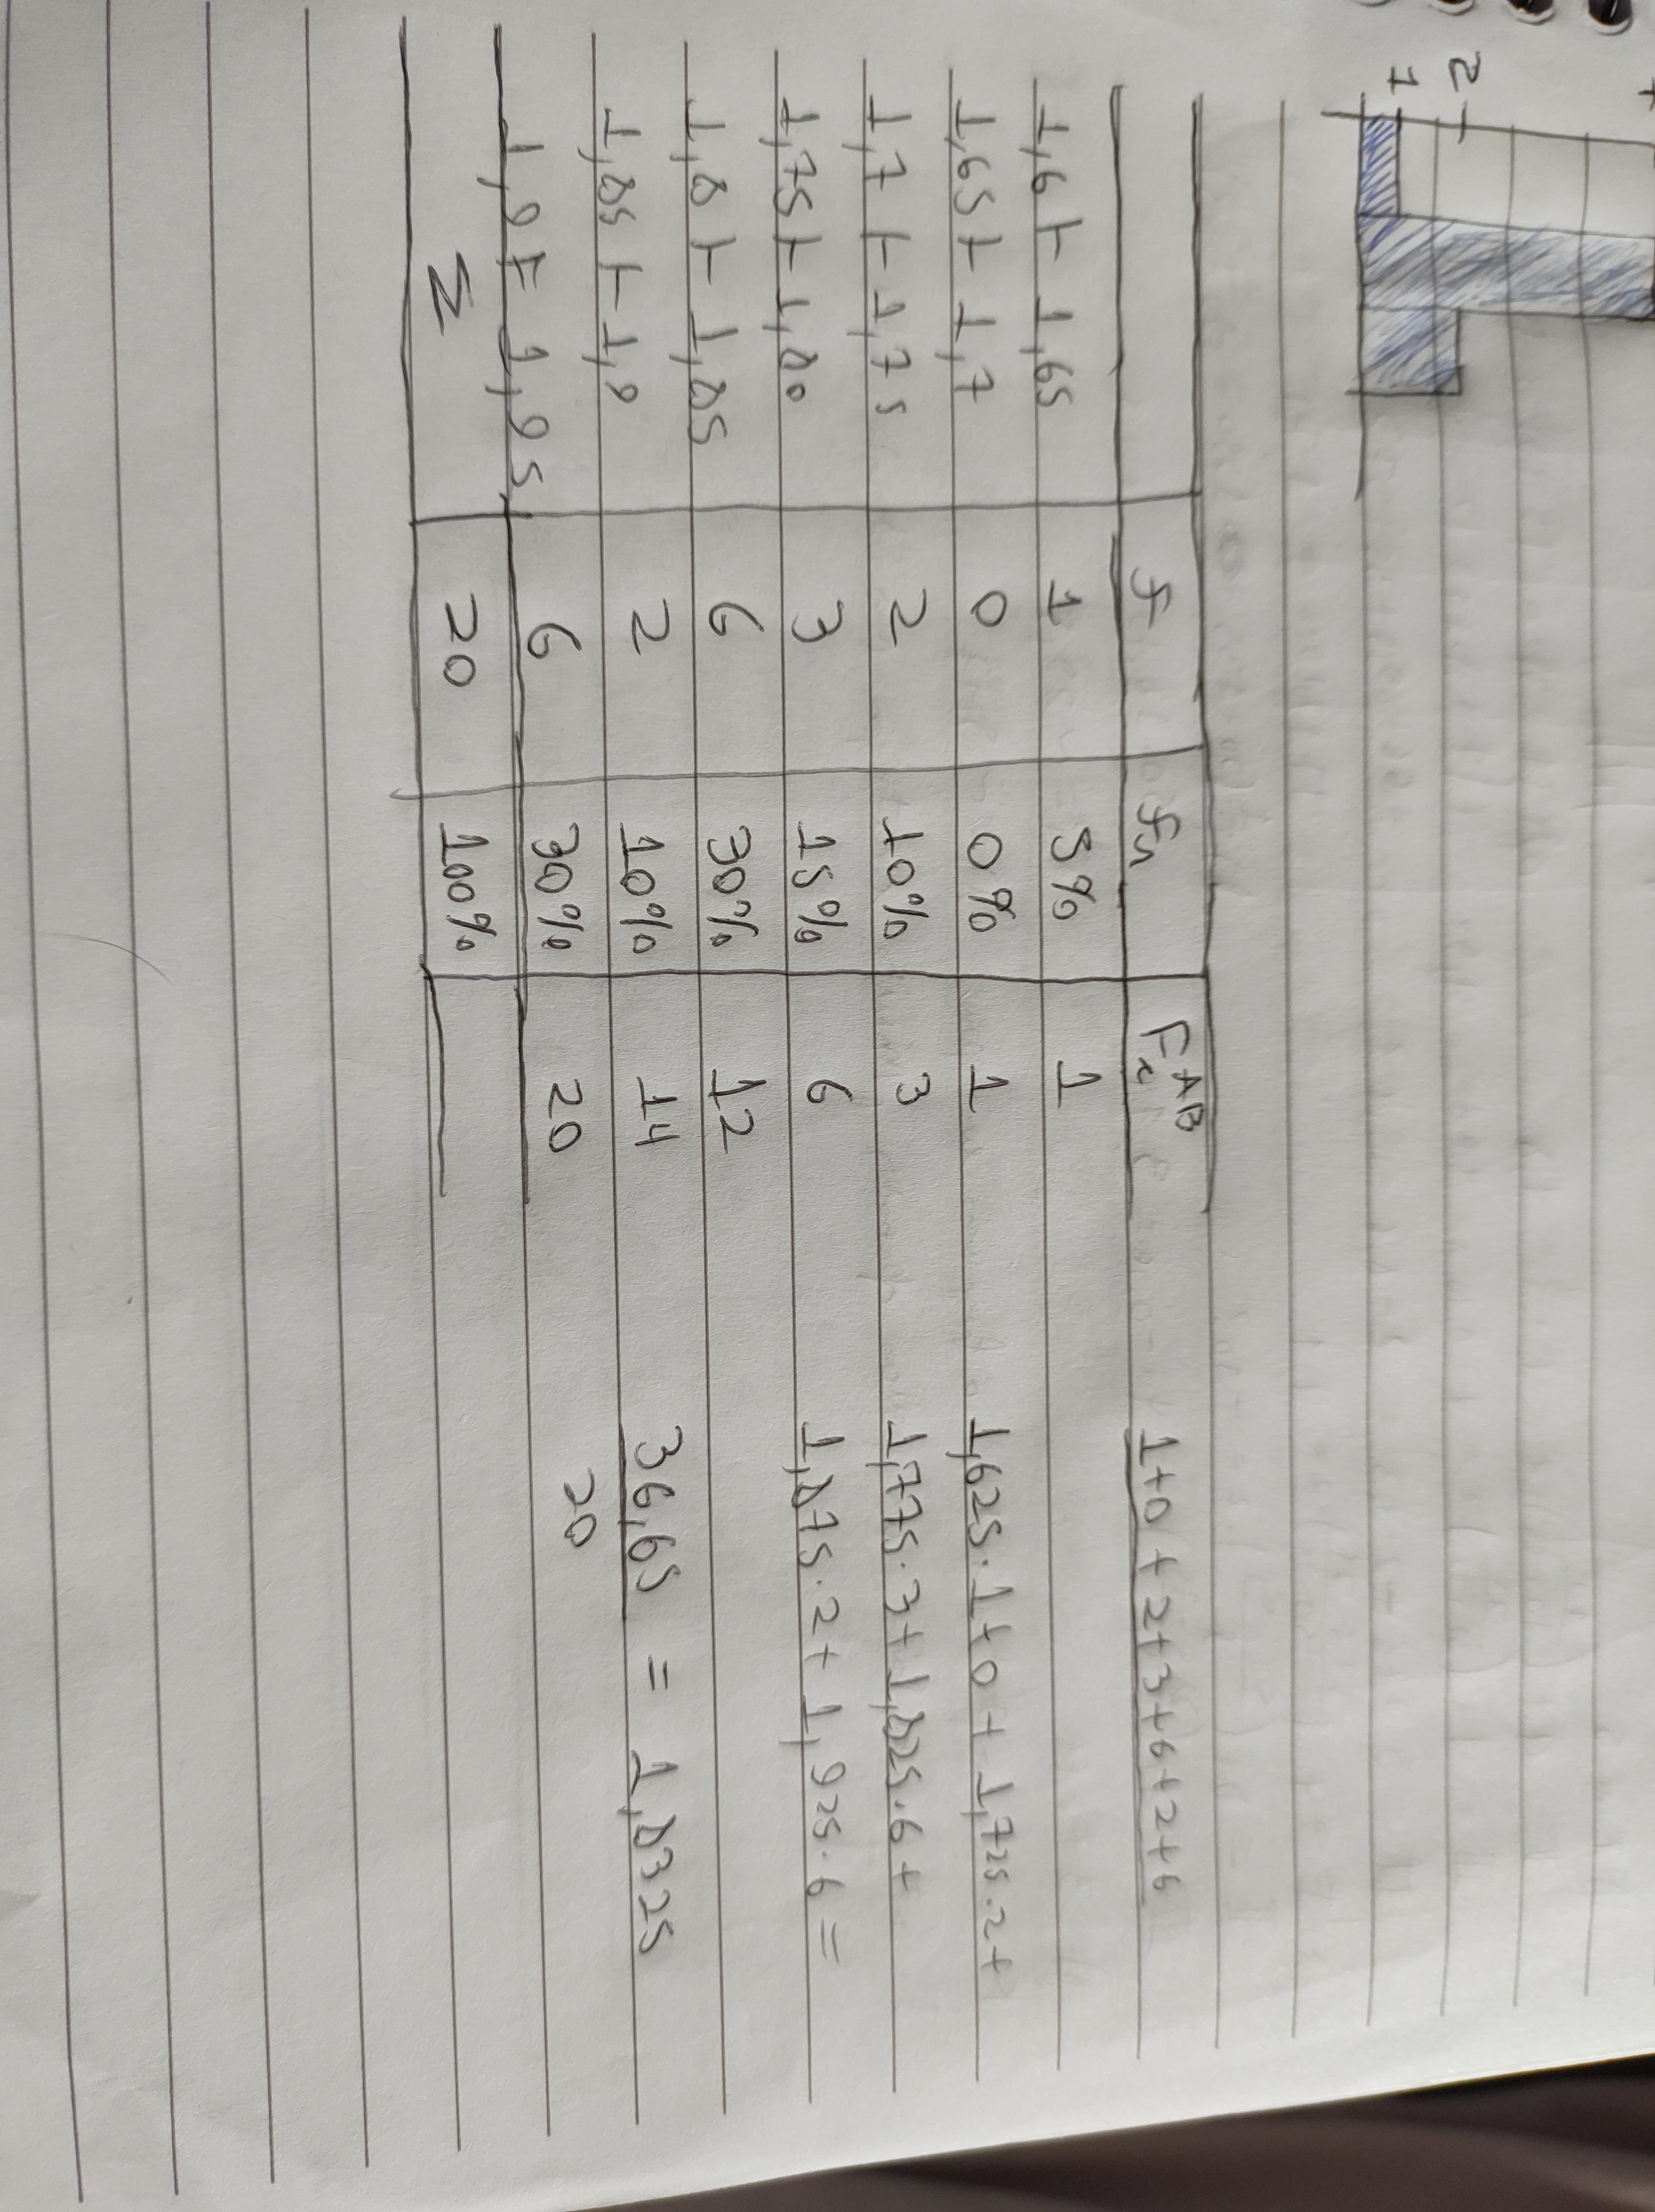 1
2
f fr FAB
1,6 ⊢ 1,65 1 5% 1
1,65 ⊢ 1,7 0 0% 1
1,7 ⊢ 1,75 2 10% 3
1,75 ⊢ 1,80 3 15% 6
1,8 ⊢ 1,85 6 30% 12
1,85 ⊢ 1,9 2 10% 14
1,9 ⊢ 1,95 6 30% 20
Σ 20 100%
1+0+2+3+6+2+6
1,625.1+0+1,725.2+
1,775.3+1,825.6+
1,875.2+1,925.6=
36,65 = 1,8325
20